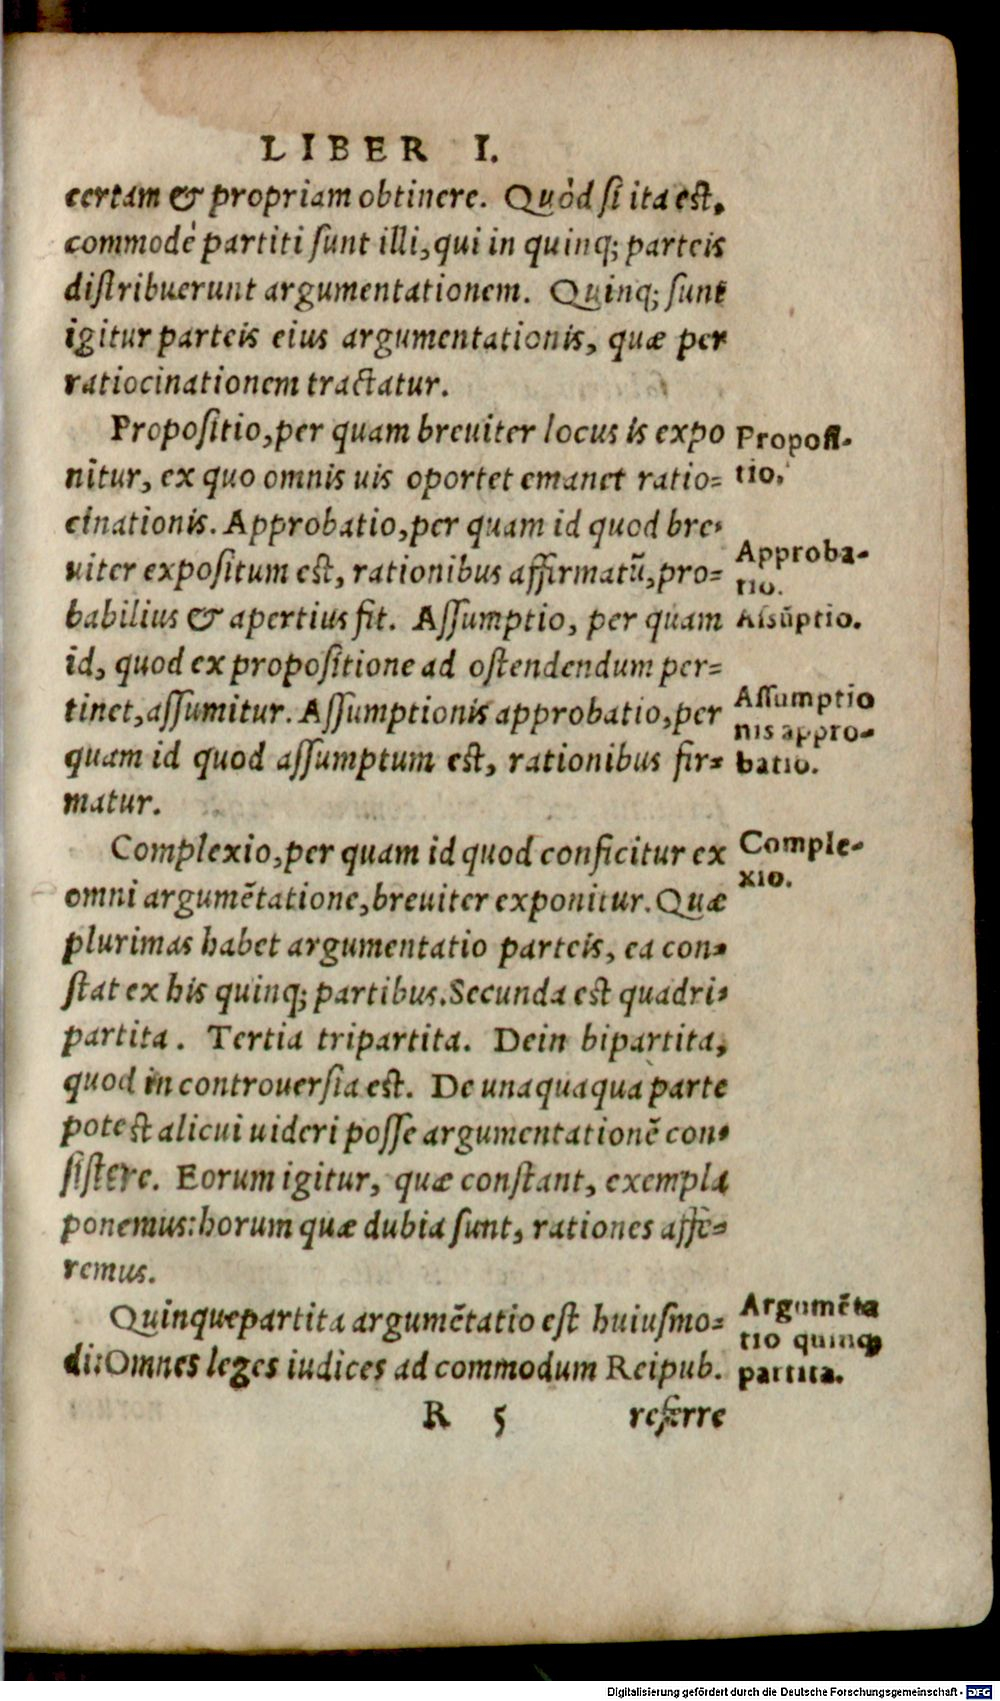 LIBER I.
certam & propriam obtinere. Quòd si ita est,
commodè partiti sunt illi, qui in quinq; parteis
distribuerunt argumentationem. Quinq; sunt
igitur parteis eius argumentationis, quæ per
ratiocinationem tractatur.
Propositio, per quam breuiter locus is expo
nitur, ex quo omnis uis oportet emanet ratio=
cinationis. Approbatio, per quam id quod bre-
uiter expositum est, rationibus affirmatū, pro=
babilius & apertius fit. Assumptio, per quam
id, quod ex propositione ad ostendendum per=
tinet, assumitur. Assumptionis approbatio, per
quam id quod assumptum est, rationibus fir-
matur.
Complexio, per quam id quod conficitur ex
omni argumẽtatione, breuiter exponitur. Quæ
plurimas habet argumentatio parteis, ea con-
stat ex his quinq; partibus. Secunda est quadri-
partita. Tertia tripartita. Dein bipartita,
quod in controuersia est. De unaquaqua parte
potest alicui uideri posse argumentationẽ con-
sistere. Eorum igitur, quæ constant, exempla
ponemus: horum quæ dubia sunt, rationes affe=
remus.
Quinquepartita argumẽtatio est huiusmo=
di: Omnes leges iudices ad commodum Reipub.
R 5 referre
Proposi-
tio.
Approba-
tio.
Assūptio.
Assumptio
nis appro-
batio.
Comple-
xio.
Argumẽta
tio quinq;
partita.
Digitalisierung gefördert durch die Deutsche Forschungsgemeinschaft - DFG